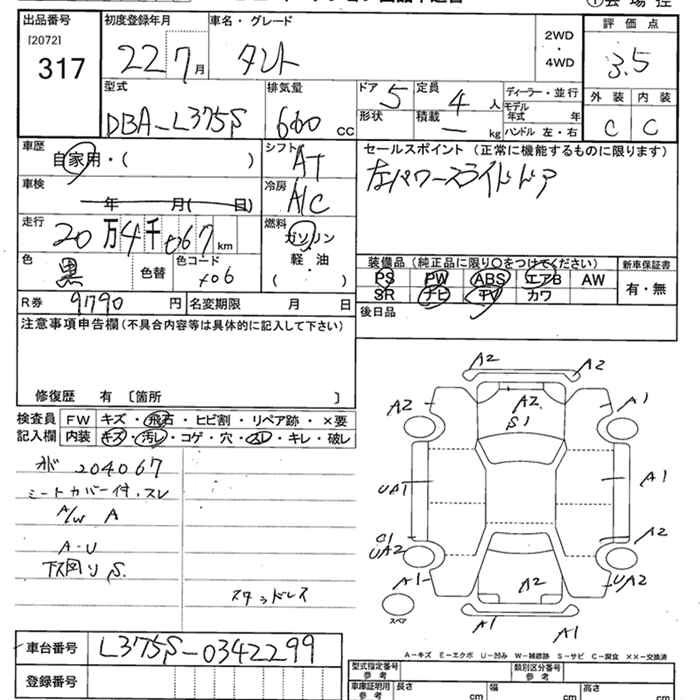 出品番号 初度登録年月 車名・グレード 評価点
[2072] 317 22 7月 タント 2WD・4WD 3.5
型式 排気量 ドア 5 定員 4人 ディーラー・並行 外装 内装
DBA-L375S 660 CC 形状 積載 — kg モデル年式 年 ハンドル 左・右 C C
車歴 自家用・( ) シフト AT セールスポイント (正常に機能するものに限ります)
車検 年 月( 日) 冷房 A/C 左パワースライドドア
走行 20万4千067km 燃料 ガソリン 軽・油 ( )
色 黒 色替 色コード X06
装備品 (純正品に限り○をつけてください) 新車保証書
PS PW ABS エアB AW 有・無
SR ナビ TV カワ
R券 9790円 名変期限 月 日 後日品
注意事項申告欄(不具合内容等は具体的に記入して下さい)
修復歴 有 〔箇所 〕
検査員 FW キズ・飛石・ヒビ割・リペア跡・×要
記入欄 内装 キズ・汚レ・コゲ・穴・スレ・キレ・破レ
204067
シートカバー付,スレ
A/W A
A・U
下廻り S
スタッドレス
A2 A2
A2 A2 A1
S1
UA1 A1
A2
UA2 UA2
A1 A2
スペア A1 A1
A-キズ E-エクボ U-凹み W-補修跡 S-サビ C-腐食 ××-交換済
車台番号 L375S-0342299
登録番号
型式指定番号 参考 類別区分番号 参考
車庫証明用 参考 長さ cm 幅 cm 高さ cm